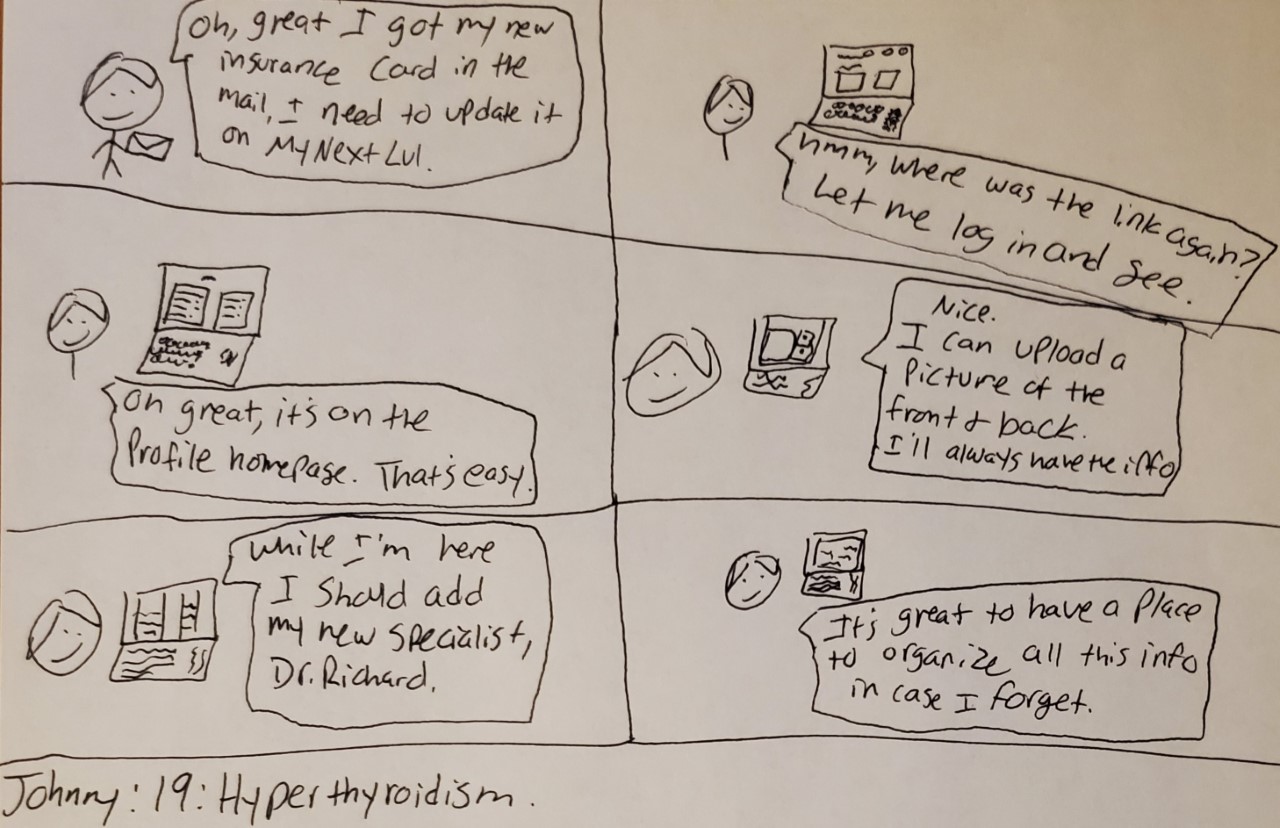 Oh, great I got my new
insurance card in the
mail, I need to update it
on MyNextLvl.
Hmm, where was the link again?
Let me log in and see.
Oh great, it's on the
Profile homepage. That's easy.
Nice.
I can upload a
picture of the
front & back.
I'll always have the info
While I'm here
I should add
my new specialist,
Dr. Richard.
It's great to have a place
to organize all this info
in case I forget.
Johnny: 19: Hyperthyroidism.